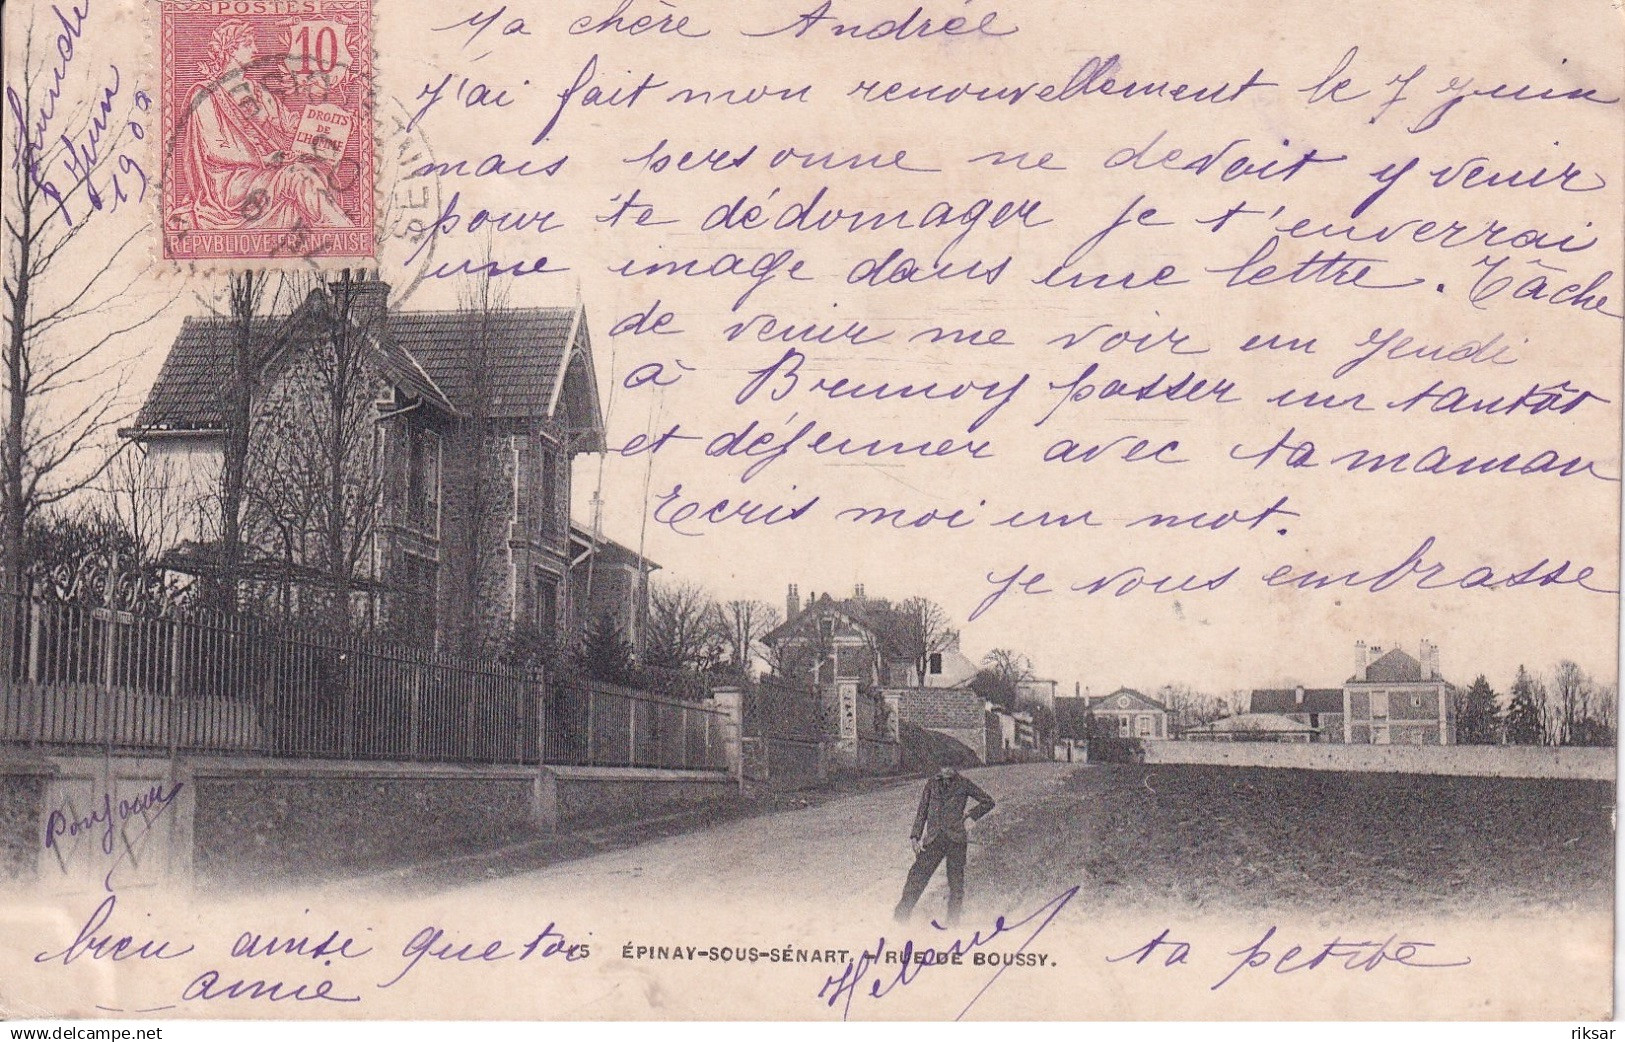 Lundi
8 Juin
190
POSTES
10
DROITS
DE
L'HOMME
REPVBLIQVE FRANÇAISE
Ma chère Andrée
J'ai fait mon renouvellement le 7 Juin
mais personne ne devait y venir
pour te dédomager je t'enverrai
une image dans une lettre. Tâche
de venir me voir un Jeudi
à Brunoy passer un tantôt
et déjeuner avec ta maman
Ecris moi un mot.
je vous embrasse
bien ainsi que toi
ta petite
amie
Hélène
Bonjour
15 ÉPINAY-SOUS-SÉNART. - RUE DE BOUSSY.
riksar